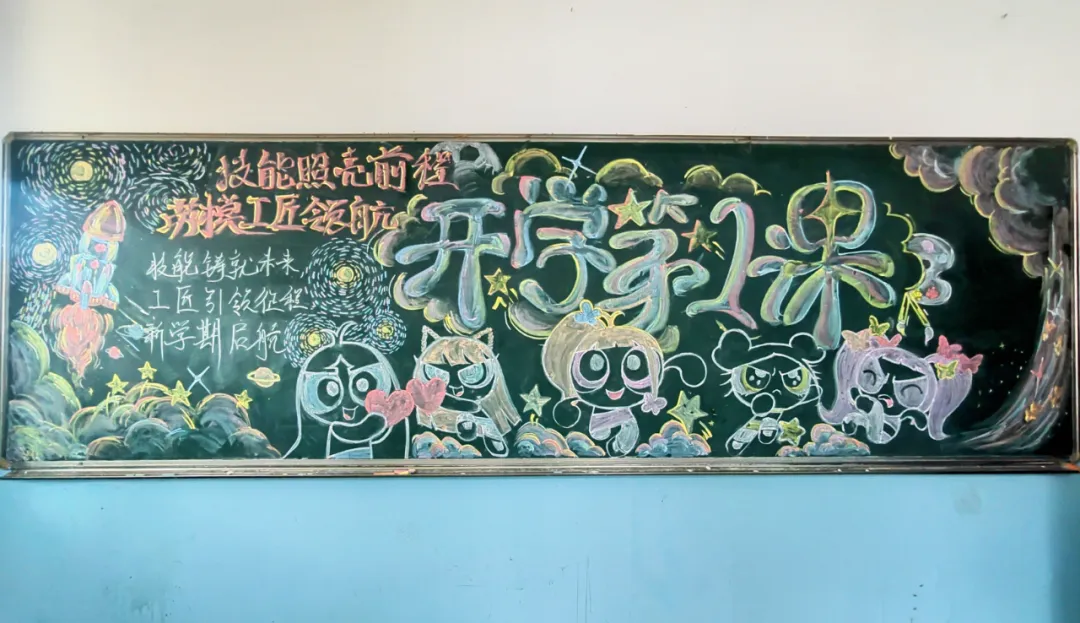 技能照亮前程
劳模工匠领航
开学第1课
技能铸就未来，
工匠引领征程
新学期启航